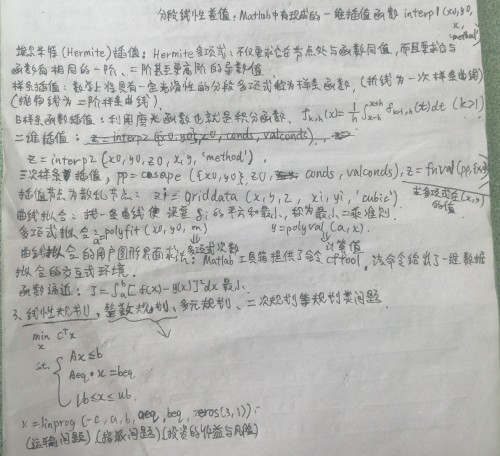 分段线性差值：Matlab中有现成的一维插值函数 interp1(x0,y0,
x, 'method')
埃尔米特(Hermite)插值：Hermite多项式：不仅要求它在节点处与函数同值，而且要求它与
函数有相同的一阶、二阶甚至更高阶的导数值
样条插值：数学上将具有一定光滑性的分段多项式称为样条函数，(折线为一次样条曲线)
(抛物线为二阶样条曲线).
B样条函数插值：利用磨光函数也就是积分函数. f_{k,h}(x)=\frac{1}{h}∫_{x-\frac{h}{2}}^{x+\frac{h}{2}} f_{k-1,h}(t)dt (k>1)
二维插值：z=interp2({x0,y0},z0,conds,valconds),
z=interp2(x0,y0,z0,x,y,'method').
三次样条插值，pp=csape({x0,y0},z0,conds,valconds), z=fnval(pp,{x,y})
插值节点为散乱节点：zi=griddata(x,y,z,xi,yi,'cubic').
求多项式在(x,y)
的值
曲线拟合：找一条曲线使误差δi的平方和最小，称为最小二乘准则.
多项式拟合：a=polyfit(x0,y0,m) y=polyval(a,x).
多项式次数 计算值
曲线拟合的用户图形界面求法：Matlab工具箱提供了命令cftool，该命令给出了一维数据
拟合的交互式环境.
函数逼近：J=∫_a^b[f(x)-y(x)]²dx最小.
3、线性规划，整数规划、多元规划、二次规划等规划类问题
min c^T x
x
s.t. { Ax≤b
Aeq*x=beq
lb≤x≤ub.
x=linprog(-c,a,b,aeq,beq,zeros(3,1)).
(运输问题)(指派问题)(投资的收益与风险)